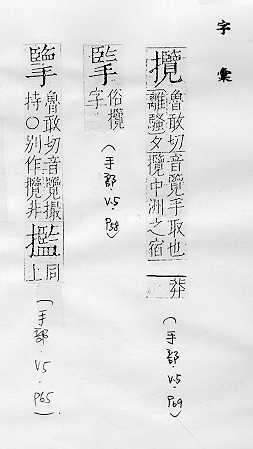 字彙
攬
魯敢切音覽手取也
離騷夕攬中洲之宿
莽
(手部 V.5 P69)
俗攬
字
(手部 V.5. P58)
擥
魯敢切音覽撮
持○別作攬非
㩜
同
上
(手部 V5 P65)